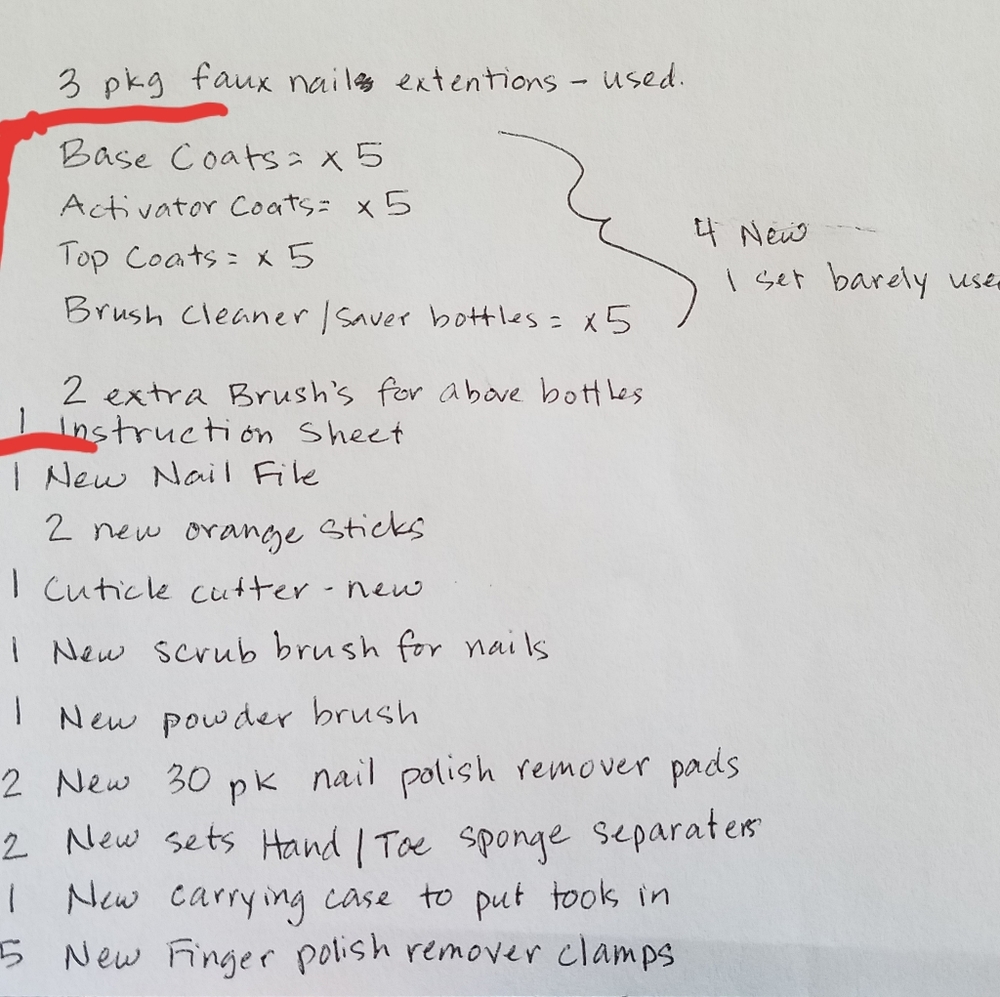 3 pkg faux nails extentions - used.
Base Coats = x 5
Activator Coats = x 5
Top Coats = x 5
Brush Cleaner / Saver bottles = x 5
4 New
1 set barely use
2 extra Brush's for above bottles
1 Instruction Sheet
1 New Nail File
2 new orange sticks
1 Cuticle cutter - new
1 New scrub brush for nails
1 New powder brush
2 New 30 pk nail polish remover pads
2 New sets Hand / Toe sponge separaters
1 New carrying case to put tools in
5 New Finger polish remover clamps